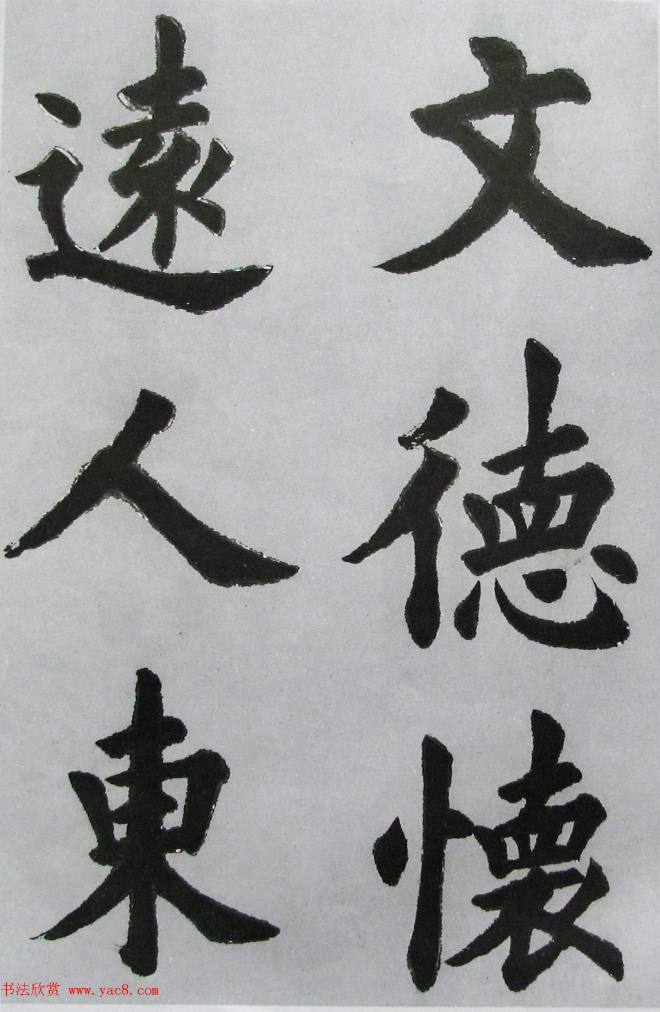 文德懷
遠人東
书法欣赏 www.yac8.com